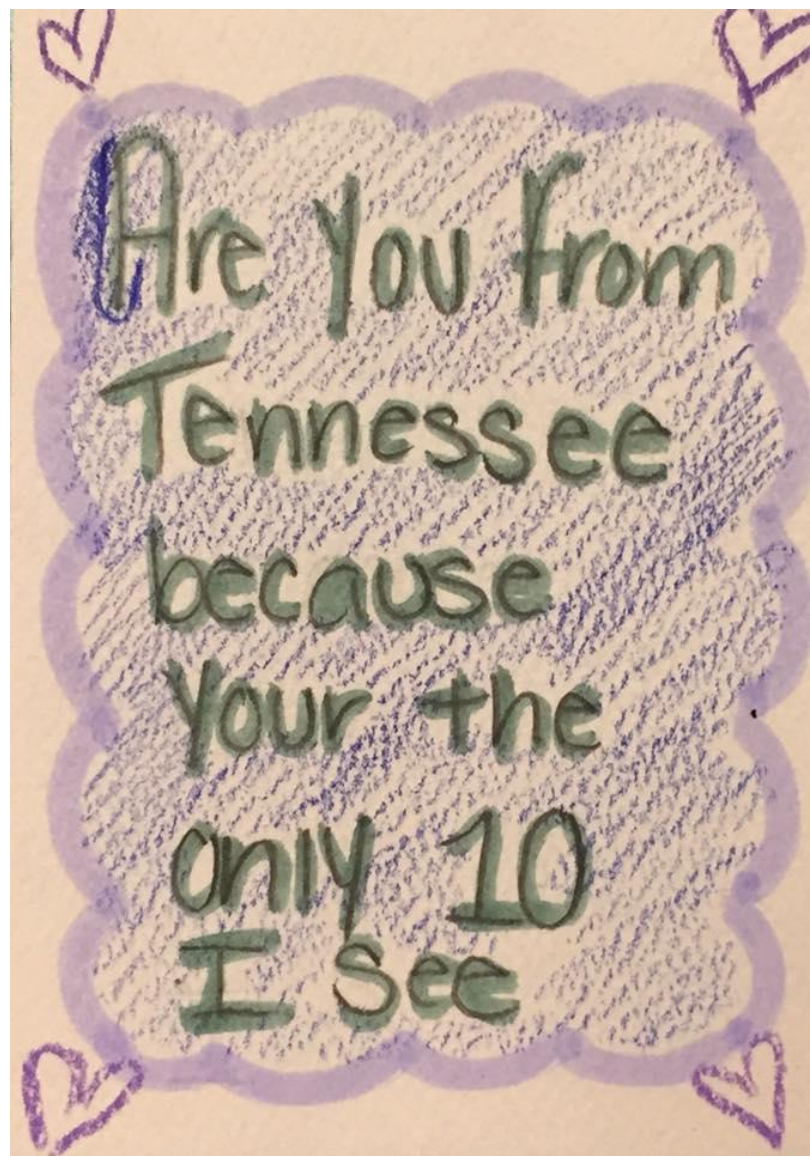 Are you from
Tennessee
because
your the
only 10
I see